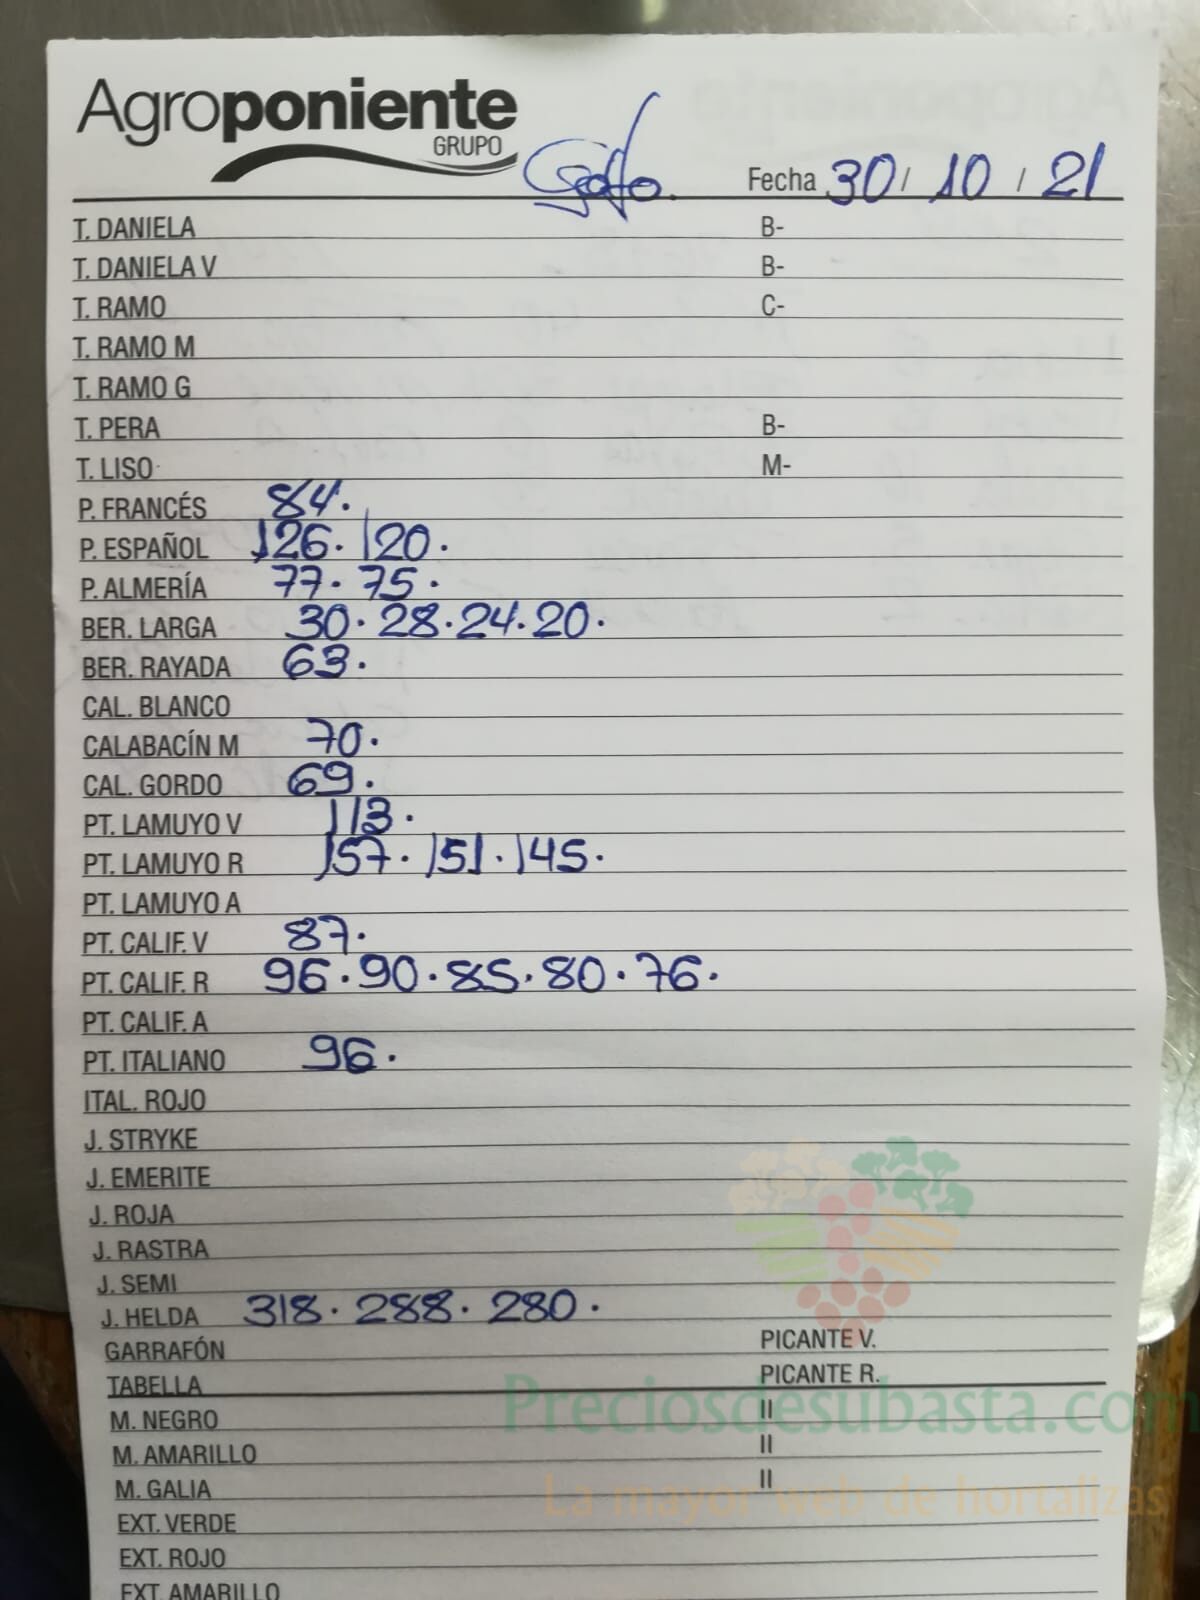 Agroponiente
GRUPO
Fecha 30 / 10 / 21
T. DANIELA B-
T. DANIELA V B-
T. RAMO C-
T. RAMO M
T. RAMO G
T. PERA B-
T. LISO M-
P. FRANCÉS 84.
P. ESPAÑOL 126. 120.
P. ALMERÍA 77. 75.
BER. LARGA 30. 28. 24. 20.
BER. RAYADA 63.
CAL. BLANCO
CALABACÍN M 70.
CAL. GORDO 69.
PT. LAMUYO V 113.
PT. LAMUYO R 157. 151. 145.
PT. LAMUYO A
PT. CALIF. V 87.
PT. CALIF. R 96. 90. 85. 80. 76.
PT. CALIF. A
PT. ITALIANO 96.
ITAL. ROJO
J. STRYKE
J. EMERITE
J. ROJA
J. RASTRA
J. SEMI
J. HELDA 318. 288. 280.
GARRAFÓN PICANTE V.
TABELLA PICANTE R.
M. NEGRO II
M. AMARILLO II
M. GALIA II
EXT. VERDE
EXT. ROJO
EXT. AMARILLO
Preciosdesubasta.com
La mayor web de hortalizas